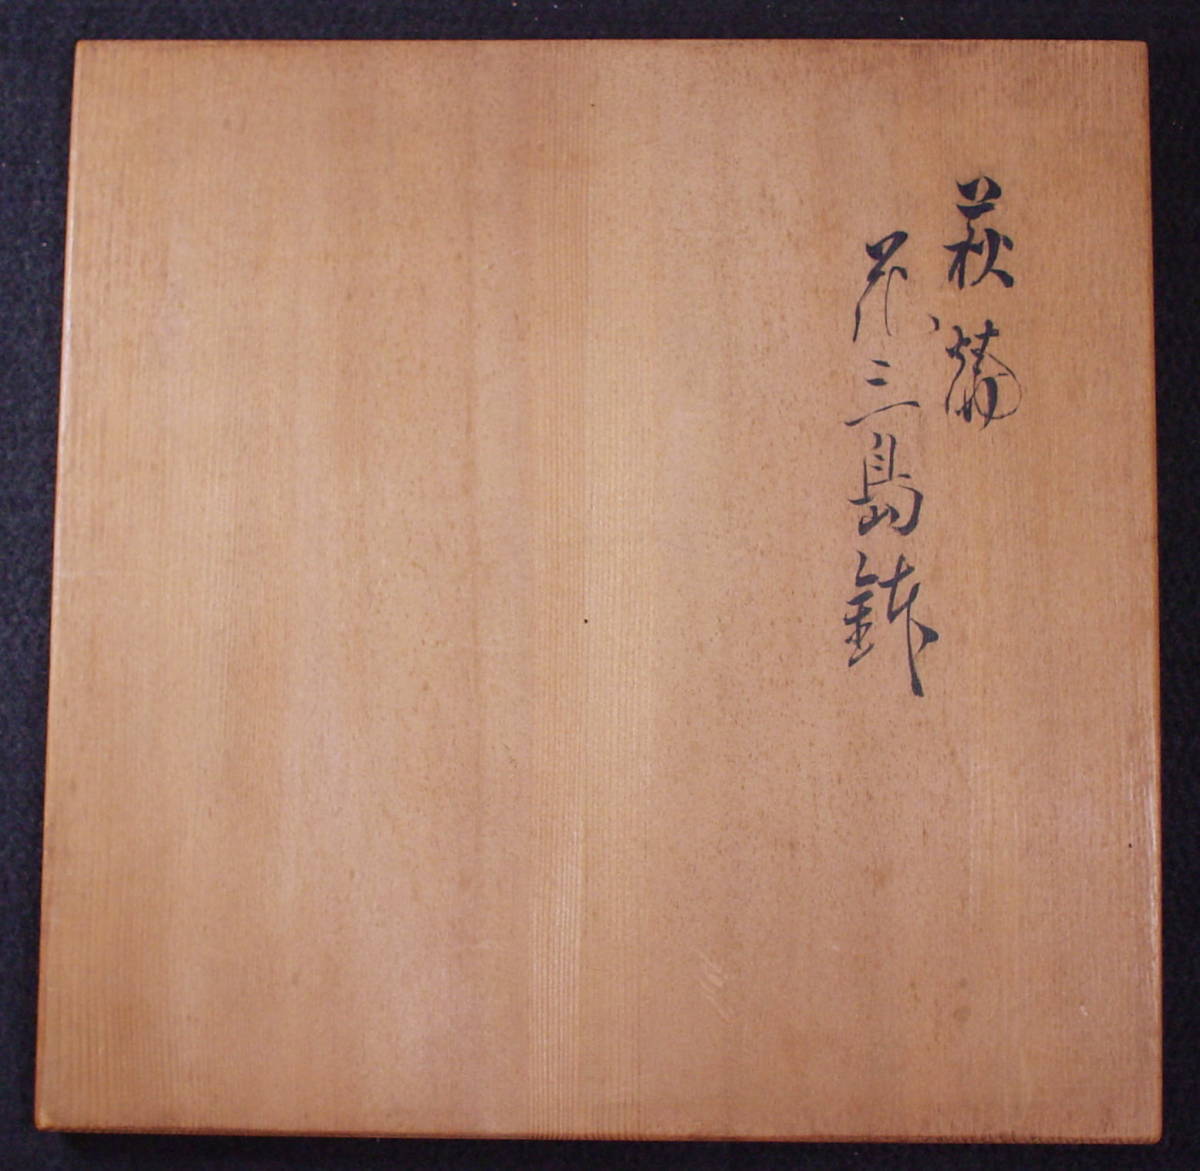 萩焼
花三島鉢